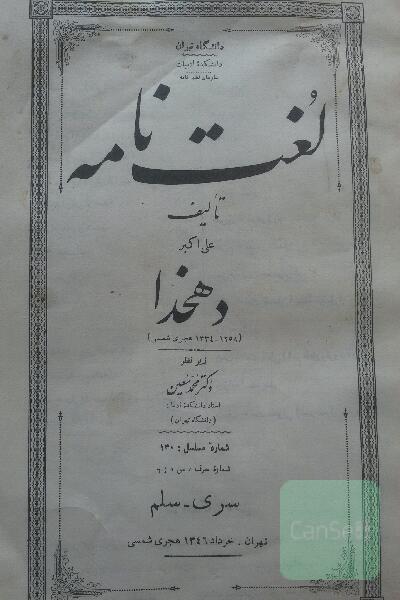 دانشگاه تهران
دانشکدهٔ ادبیات
سازمان لغت نامه
لغُت نامه
تألیف
علی اکبر
دهخدا
(۱۲۵۸-۱۳۳۴ هجری شمسی)
زیر نظر
دکتر محمد معین
استاد دانشکدهٔ ادبیات
(دانشگاه تهران)
شمارهٔ مسلسل : ۱۳۰
شمارهٔ حرف «س»
سری ـ سلم
تهران ، خرداد ۱۳۴۶ هجری شمسی
CanSe